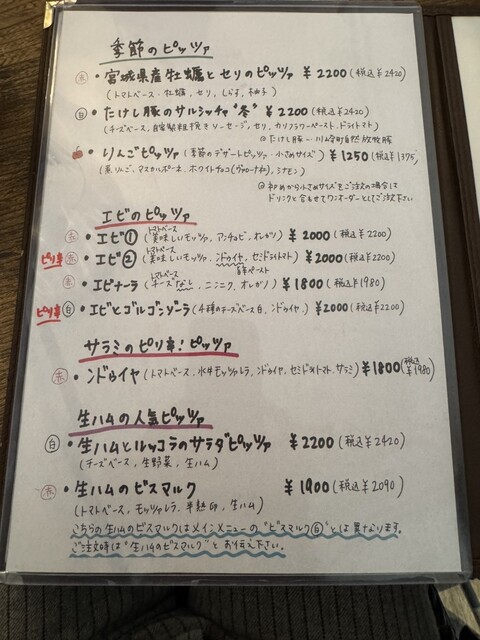 季節のピッツァ
赤 ・宮城県産牡蠣とセリのピッツァ ¥2200(税込¥2420)
(トマトベース、牡蠣、セリ、しらす、柚子)
白 ・たけし豚のサルシッチャ"冬" ¥2200(税込¥2420)
(チーズベース、自家製粗挽きソーセージ、セリ、カリフラワーペースト、ドライトマト)
@たけし豚…川山令町自然放牧豚
・りんごピッツァ(季節のデザートピッツァ・小さめサイズ) ¥1250(税込¥1375)
(煮りんご、マスカルポーネ、ホワイトチョコ(ヴァローナ社)、シナモン)
@初めから小さめサイズをご注文の場合は
ドリンクと合わせてワンオーダーとしてご注文下さい
エビのピッツァ
赤 ・エビ① トマトベース (美味しいモッツァ、アンチョビ、オレガノ) ¥2000(税込¥2200)
ピリ辛 赤 ・エビ② トマトベース (美味しいモッツァ、ンドゥイヤ、セミドライトマト) ¥2000(税込¥2200)
辛ペースト
赤 ・エビナーラ トマトベース (チーズなし、ニンニク、オレガノ) ¥1800(税込¥1980)
ピリ辛 白 ・エビとゴルゴンゾーラ(4種のチーズベース白、ンドゥイヤ) ¥2000(税込¥2200)
サラミのピリ辛!ピッツァ
赤 ・ンドゥイヤ(トマトベース、水牛モッツァレラ、ンドゥイヤ、セミドライトマト、サラミ) ¥1800(税込¥1980)
生ハムの人気ピッツァ
白 ・生ハムとルッコラのサラダピッツァ ¥2200(税込¥2420)
(チーズベース、生野菜、生ハム)
赤 ・生ハムのビスマルク ¥1900(税込¥2090)
(トマトベース、モッツァレラ、半熟卵、生ハム)
こちらの生ハムのビスマルクはメインメニューの"ビスマルク(白)"とは異なります。
ご注文時は"生ハムのビスマルク"とお伝え下さい。